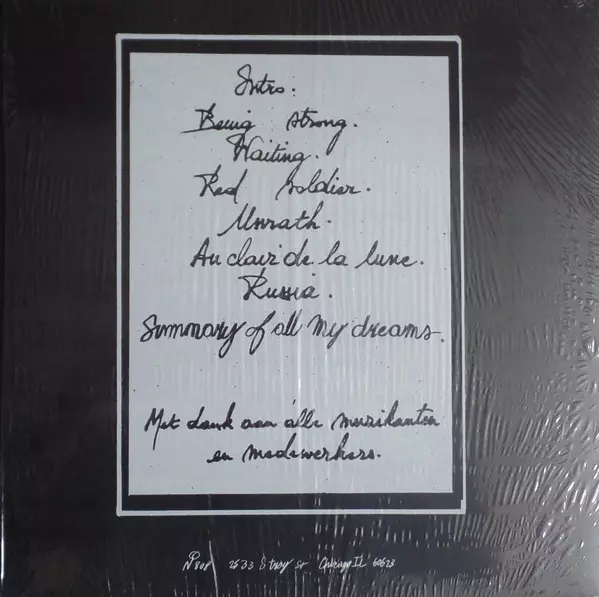 Intro:
Being strong.
Waiting.
Red soldier.
Unrath.
Au clair de la lune.
Russia.
Summary of all My dreams.
Met dank aan alle muzikanten
en medewerkers.
2533 St Chicago IL 60623